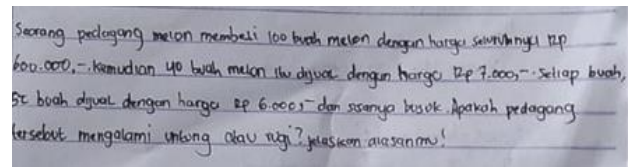 Seorang pedagang melon membeli 100 buah melon dengan harga seluruhnya Rp
600.000,-. Kemudian 40 buah melon itu dijual dengan harga Rp 7.000,-. Setiap buah,
52 buah dijual dengan harga Rp 6.000,- dan sisanya busuk. Apakah pedagang
tersebut mengalami untung atau rugi? jelaskan alasanmu!